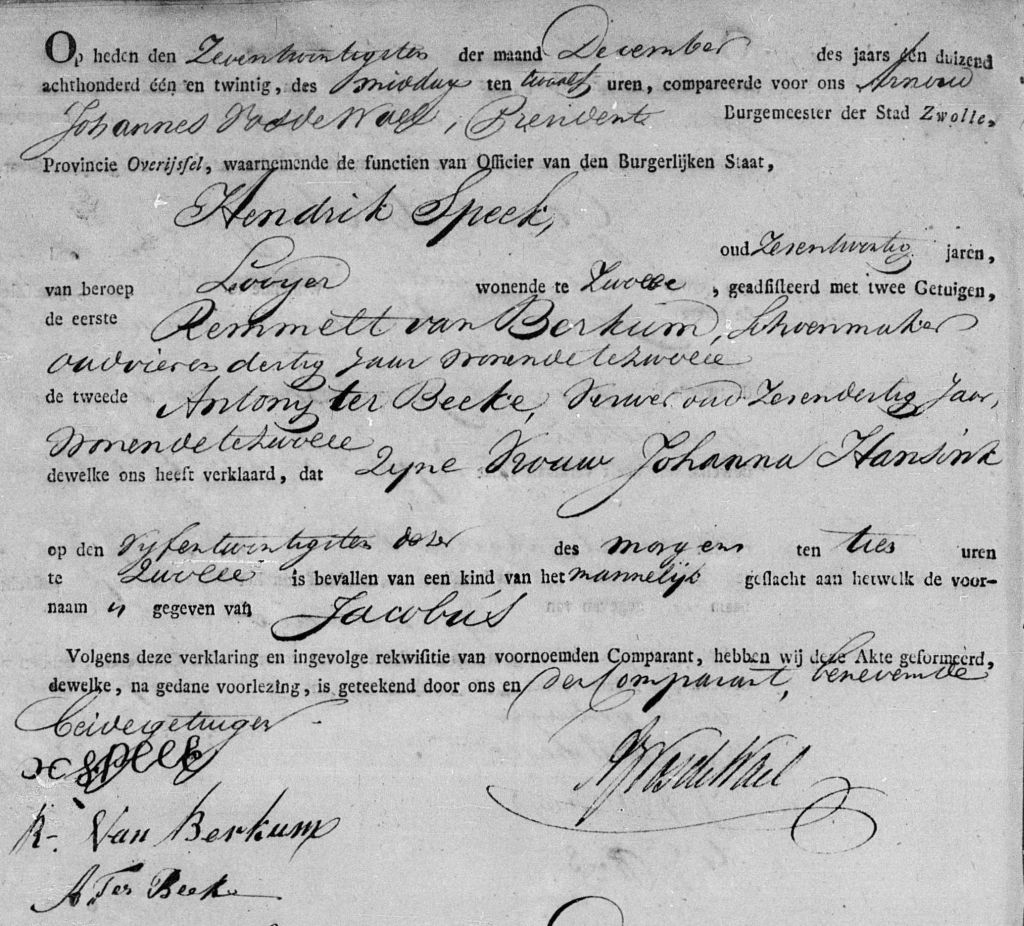 Op heden den Zeventwintigsten der maand December des jaars één duizend
achthonderd één en twintig, des middag ten twaalf uren, compareerde voor ons Arnoud
Johannes Vos de Wael, President Burgemeester der Stad Zwolle,
Provincie Overijssel, waarnemende de functien van Officier van den Burgerlijken Staat,
Hendrik Speek,
oud Zesentwintig jaren,
van beroep Looyer wonende te Zwolle, geadsisteerd met twee Getuigen,
de eerste Remmelt van Berkum, Schoenmaker
oud vierendertig Jaar Wonende te Zwolle
de tweede Antony ter Beeke, Verwer oud Zesendertig Jaar,
Wonende te Zwolle
dewelke ons heeft verklaard, dat Zyne Vrouw Johanna Hansink
op den Vyfentwintigsten dezer des morgens ten ties uren
te Zwolle is bevallen van een kind van het mannelijk geslacht aan hetwelk de voor-
naam is gegeven van Jacobus
Volgens deze verklaring en ingevolge rekwisitie van voornoemden Comparant, hebben wij deze Akte geformeerd,
dewelke, na gedane voorlezing, is geteekend door ons en der Comparant, benevens de
beide getuigen
H Speek
AJ Vos de Wael
R. Van Berkum
A Ter Beek